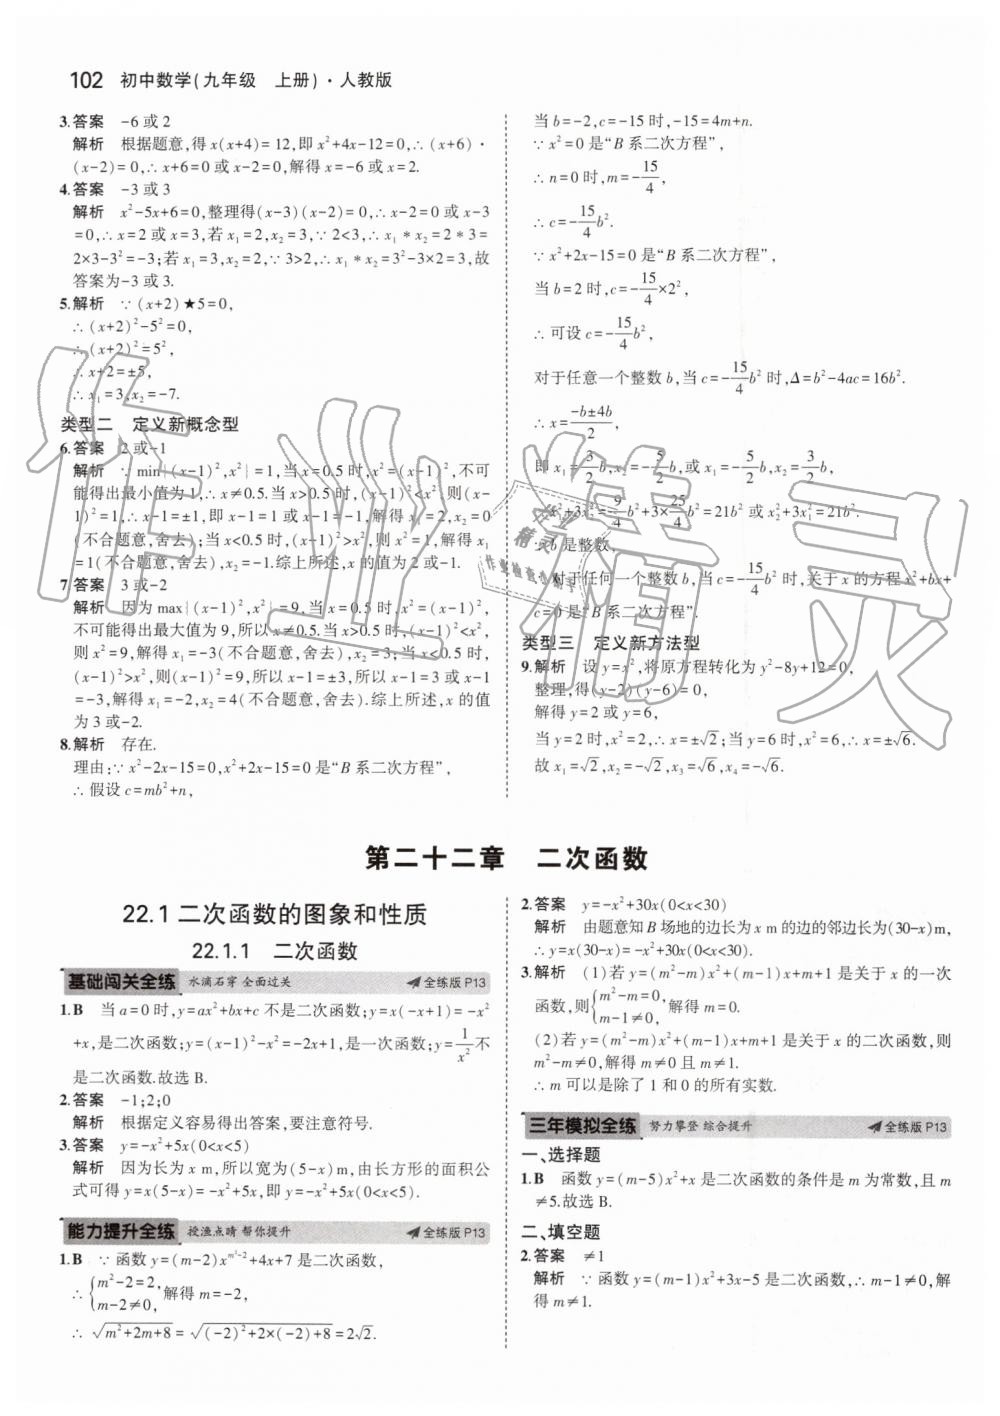 102 初中数学(九年级 上册)·人教版
3.答案 -6或2
解析 根据题意,得x(x+4)=12,即x²+4x-12=0,∴(x+6)·
(x-2)=0,∴x+6=0或x-2=0,解得x=-6或x=2.
4.答案 -3或3
解析 x²-5x+6=0,整理得(x-3)(x-2)=0,∴x-2=0或x-3
=0,∴x=2或x=3,若x₁=2,x₂=3,∵2<3,∴x₁*x₂=2*3=
2×3-3²=-3;若x₁=3,x₂=2,∵3>2,∴x₁*x₂=3²-3×2=3,故
答案为-3或3.
5.解析 ∵(x+2)★5=0,
∴(x+2)²-5²=0,
∴(x+2)²=5²,
∴x+2=±5,
∴x₁=3,x₂=-7.
类型二 定义新概念型
6.答案 2或-1
解析 ∵min{(x-1)²,x²}=1,当x=0.5时,x²=(x-1)²,不可
能得出最小值为1,∴x≠0.5.当x>0.5时,(x-1)²<x²,则(x-
1)²=1,∴x-1=±1,即x-1=1或x-1=-1,解得x₁=2,x₂=0
(不合题意,舍去);当x<0.5时,(x-1)²>x²,则x²=1,解得x₁
=1(不合题意,舍去),x₂=-1.综上所述,x的值为2或-1.
7.答案 3或-2
解析 因为max{(x-1)²,x²}=9,当x=0.5时,x²=(x-1)²,
不可能得出最大值为9,所以x≠0.5.当x>0.5时,(x-1)²<x²,
则x²=9,解得x₁=-3(不合题意,舍去),x₂=3;当x<0.5时,
(x-1)²>x²,则(x-1)²=9,所以x-1=±3,所以x-1=3或x-1
=-3,解得x₁=-2,x₂=4(不合题意,舍去).综上所述,x的值
为3或-2.
8.解析 存在.
理由:∵x²-2x-15=0,x²+2x-15=0是“B系二次方程”,
∴假设c=mb²+n,
当b=-2,c=-15时,-15=4m+n.
∵x²=0是“B系二次方程”,
∴n=0时,m=-15/4,
∴c=-15/4b².
∵x²+2x-15=0是“B系二次方程”,
当b=2时,c=-15/4×2²,
∴可设c=-15/4b²,
对于任意一个整数b,当c=-15/4b²时,Δ=b²-4ac=16b².
∴x=(-b±4b)/2,
即x₁=3/2b,x₂=-5/2b,或x₁=-5/2b,x₂=3/2b,
x₁²+3x₂²=9/4b²+3×25/4b²=21b²或x₂²+3x₁²=21b².
∵b是整数,
∴对于任何一个整数b,当c=-15/4b²时,关于x的方程x²+bx+
c=0是“B系二次方程”.
类型三 定义新方法型
9.解析 设y=x²,将原方程转化为y²-8y+12=0,
整理,得(y-2)(y-6)=0,
解得y=2或y=6,
当y=2时,x²=2,∴x=±√2;当y=6时,x²=6,∴x=±√6.
故x₁=√2,x₂=-√2,x₃=√6,x₄=-√6.
第二十二章 二次函数
22.1二次函数的图象和性质
22.1.1 二次函数
基础闯关全练 水滴石穿 全面过关 全练版P13
1.B 当a=0时,y=ax²+bx+c不是二次函数;y=x(-x+1)=-x²
+x,是二次函数;y=(x-1)²-x²=-2x+1,是一次函数;y=1/x²不
是二次函数.故选B.
2.答案 -1;2;0
解析 根据定义容易得出答案,要注意符号.
3.答案 y=-x²+5x(0<x<5)
解析 因为长为x m,所以宽为(5-x)m,由长方形的面积公
式可得y=x(5-x)=-x²+5x,即y=-x²+5x(0<x<5).
能力提升全练 授渔点睛 帮你提升 全练版P13
1.B ∵函数y=(m-2)x^(m²-2)+4x+7是二次函数,
∴{m²-2=2, m-2≠0, 解得m=-2,
∴√(m²+2m+8)=√((-2)²+2×(-2)+8)=2√2.
2.答案 y=-x²+30x(0<x<30)
解析 由题意知B场地的边长为x m的边的邻边长为(30-x)m,
∴y=x(30-x)=-x²+30x(0<x<30).
3.解析 (1)若y=(m²-m)x²+(m-1)x+m+1是关于x的一次
函数,则{m²-m=0, m-1≠0, 解得m=0.
(2)若y=(m²-m)x²+(m-1)x+m+1是关于x的二次函数,则
m²-m≠0,解得m≠0且m≠1.
∴m可以是除了1和0的所有实数.
三年模拟全练 努力攀登 综合提升 全练版P13
一、选择题
1.B 函数y=(m-5)x²+x是二次函数的条件是m为常数,且m
≠5.故选B.
二、填空题
2.答案 ≠1
解析 ∵函数y=(m-1)x²+3x-5是二次函数,∴m-1≠0,解
得m≠1.
作业精灵